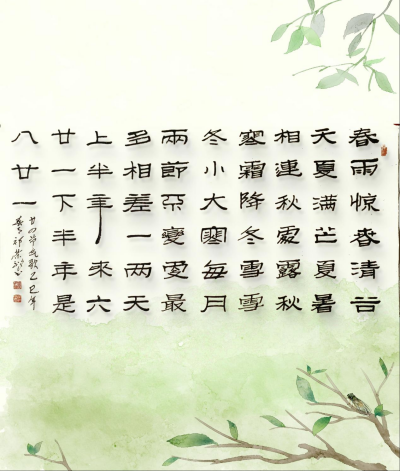 春雨惊春清谷
天夏满芒夏暑
相連秋處露秋
寒霜降冬雪雪
冬小大寒每月
兩節不變更最
多相差一两天
上半年来六
廿一下半年是
八廿一
廿四节气歌乙巳年